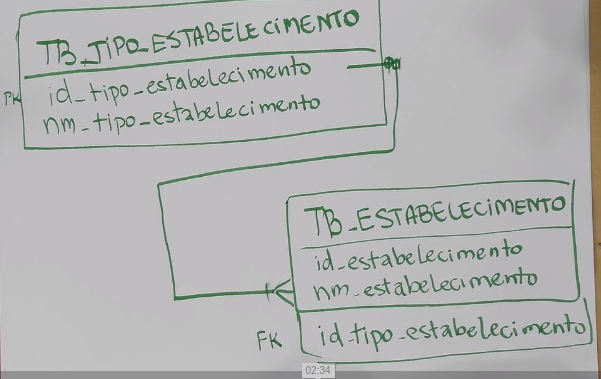 TB_TIPO_ESTABELECIMENTO
PK id_tipo_estabelecimento
nm_tipo_estabelecimento
TB_ESTABELECIMENTO
id_estabelecimento
nm_estabelecimento
FK id_tipo_estabelecimento
02:34